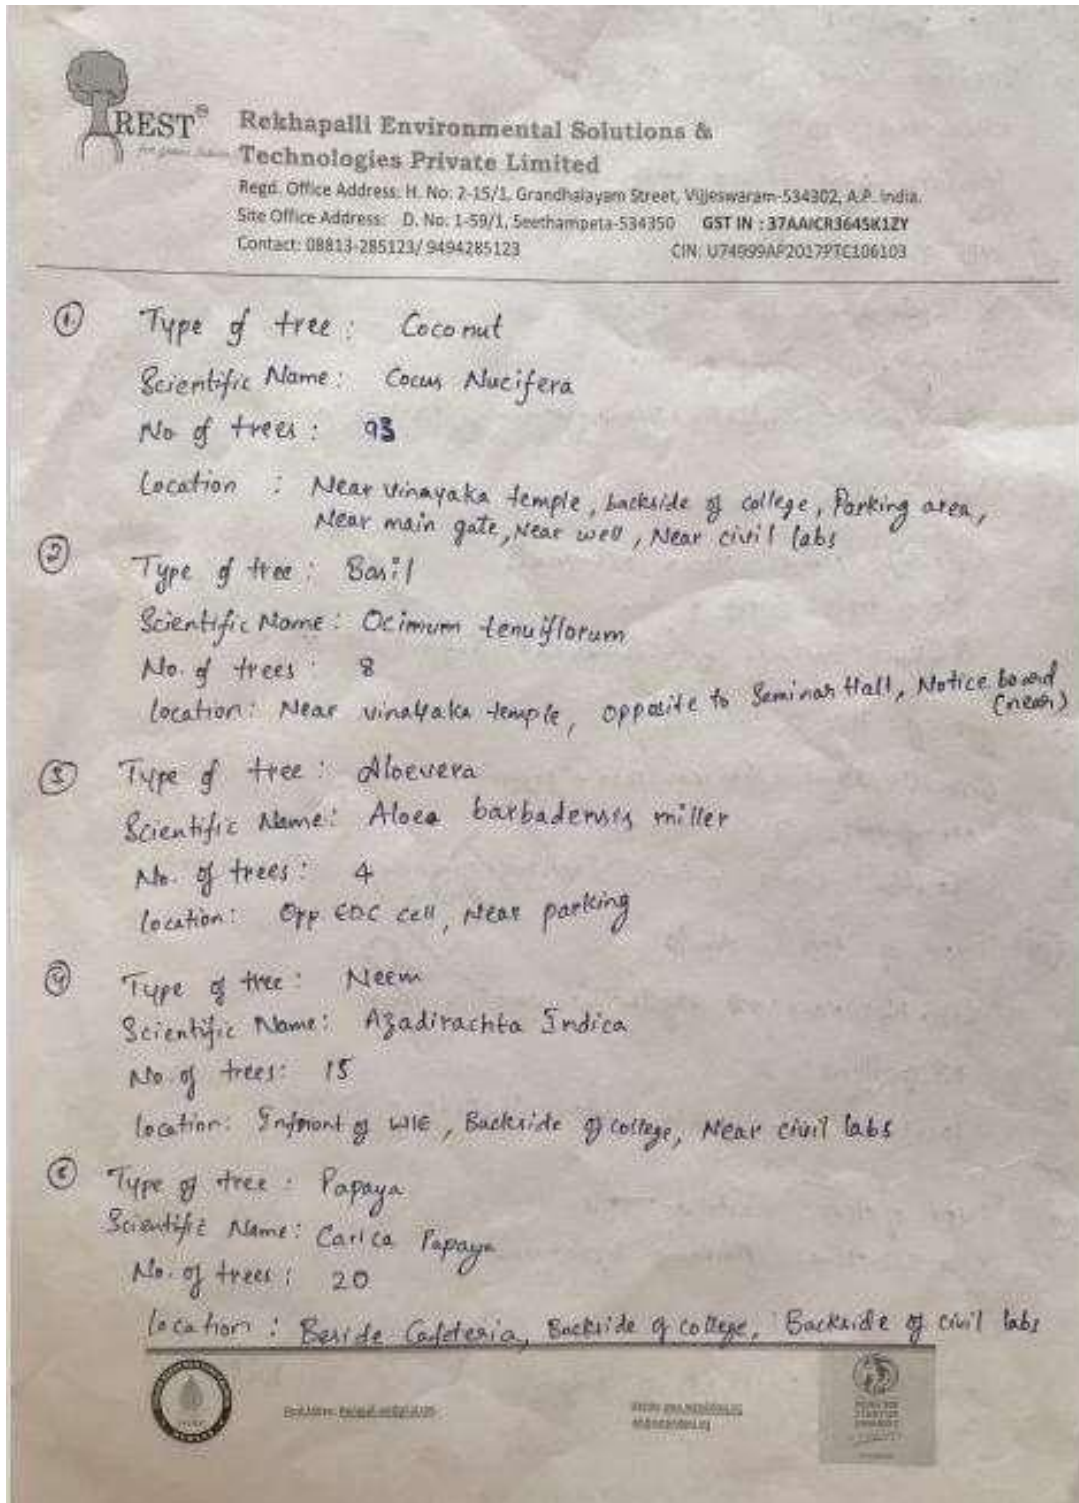 REST®
for green future
Rekhapalli Environmental Solutions &
Technologies Private Limited
Regd. Office Address: H. No: 2-15/1, Grandhalayam Street, Vijjeswaram-534302, A.P. India.
Site Office Address: D. No: 1-59/1, Seethampeta-534350 GST IN : 37AAICR3645K1ZY
Contact: 08813-285123/ 9494285123 CIN: U74999AP2017PTC106103
① Type of tree : Coconut
Scientific Name : Cocus Nucifera
No of trees : 93
Location : Near vinayaka temple, backside of college, Parking area,
Near main gate, Near well, Near civil labs
② Type of tree : Basil
Scientific Name : Ocimum tenuiflorum
No. of trees : 8
location : Near vinayaka temple, opposite to Seminar Hall, Notice board
(near)
③ Type of tree : Aloevera
Scientific Name : Aloea barbadensis miller
No. of trees : 4
location : Opp EDC cell, Near parking
④ Type of tree : Neem
Scientific Name : Azadirachta Indica
No of trees : 15
location : Infront of WIE, Backside of college, Near civil labs
⑤ Type of tree : Papaya
Scientific Name : Carica Papaya
No. of trees : 20
location : Beside Cafeteria, Backside of college, Backside of civil labs